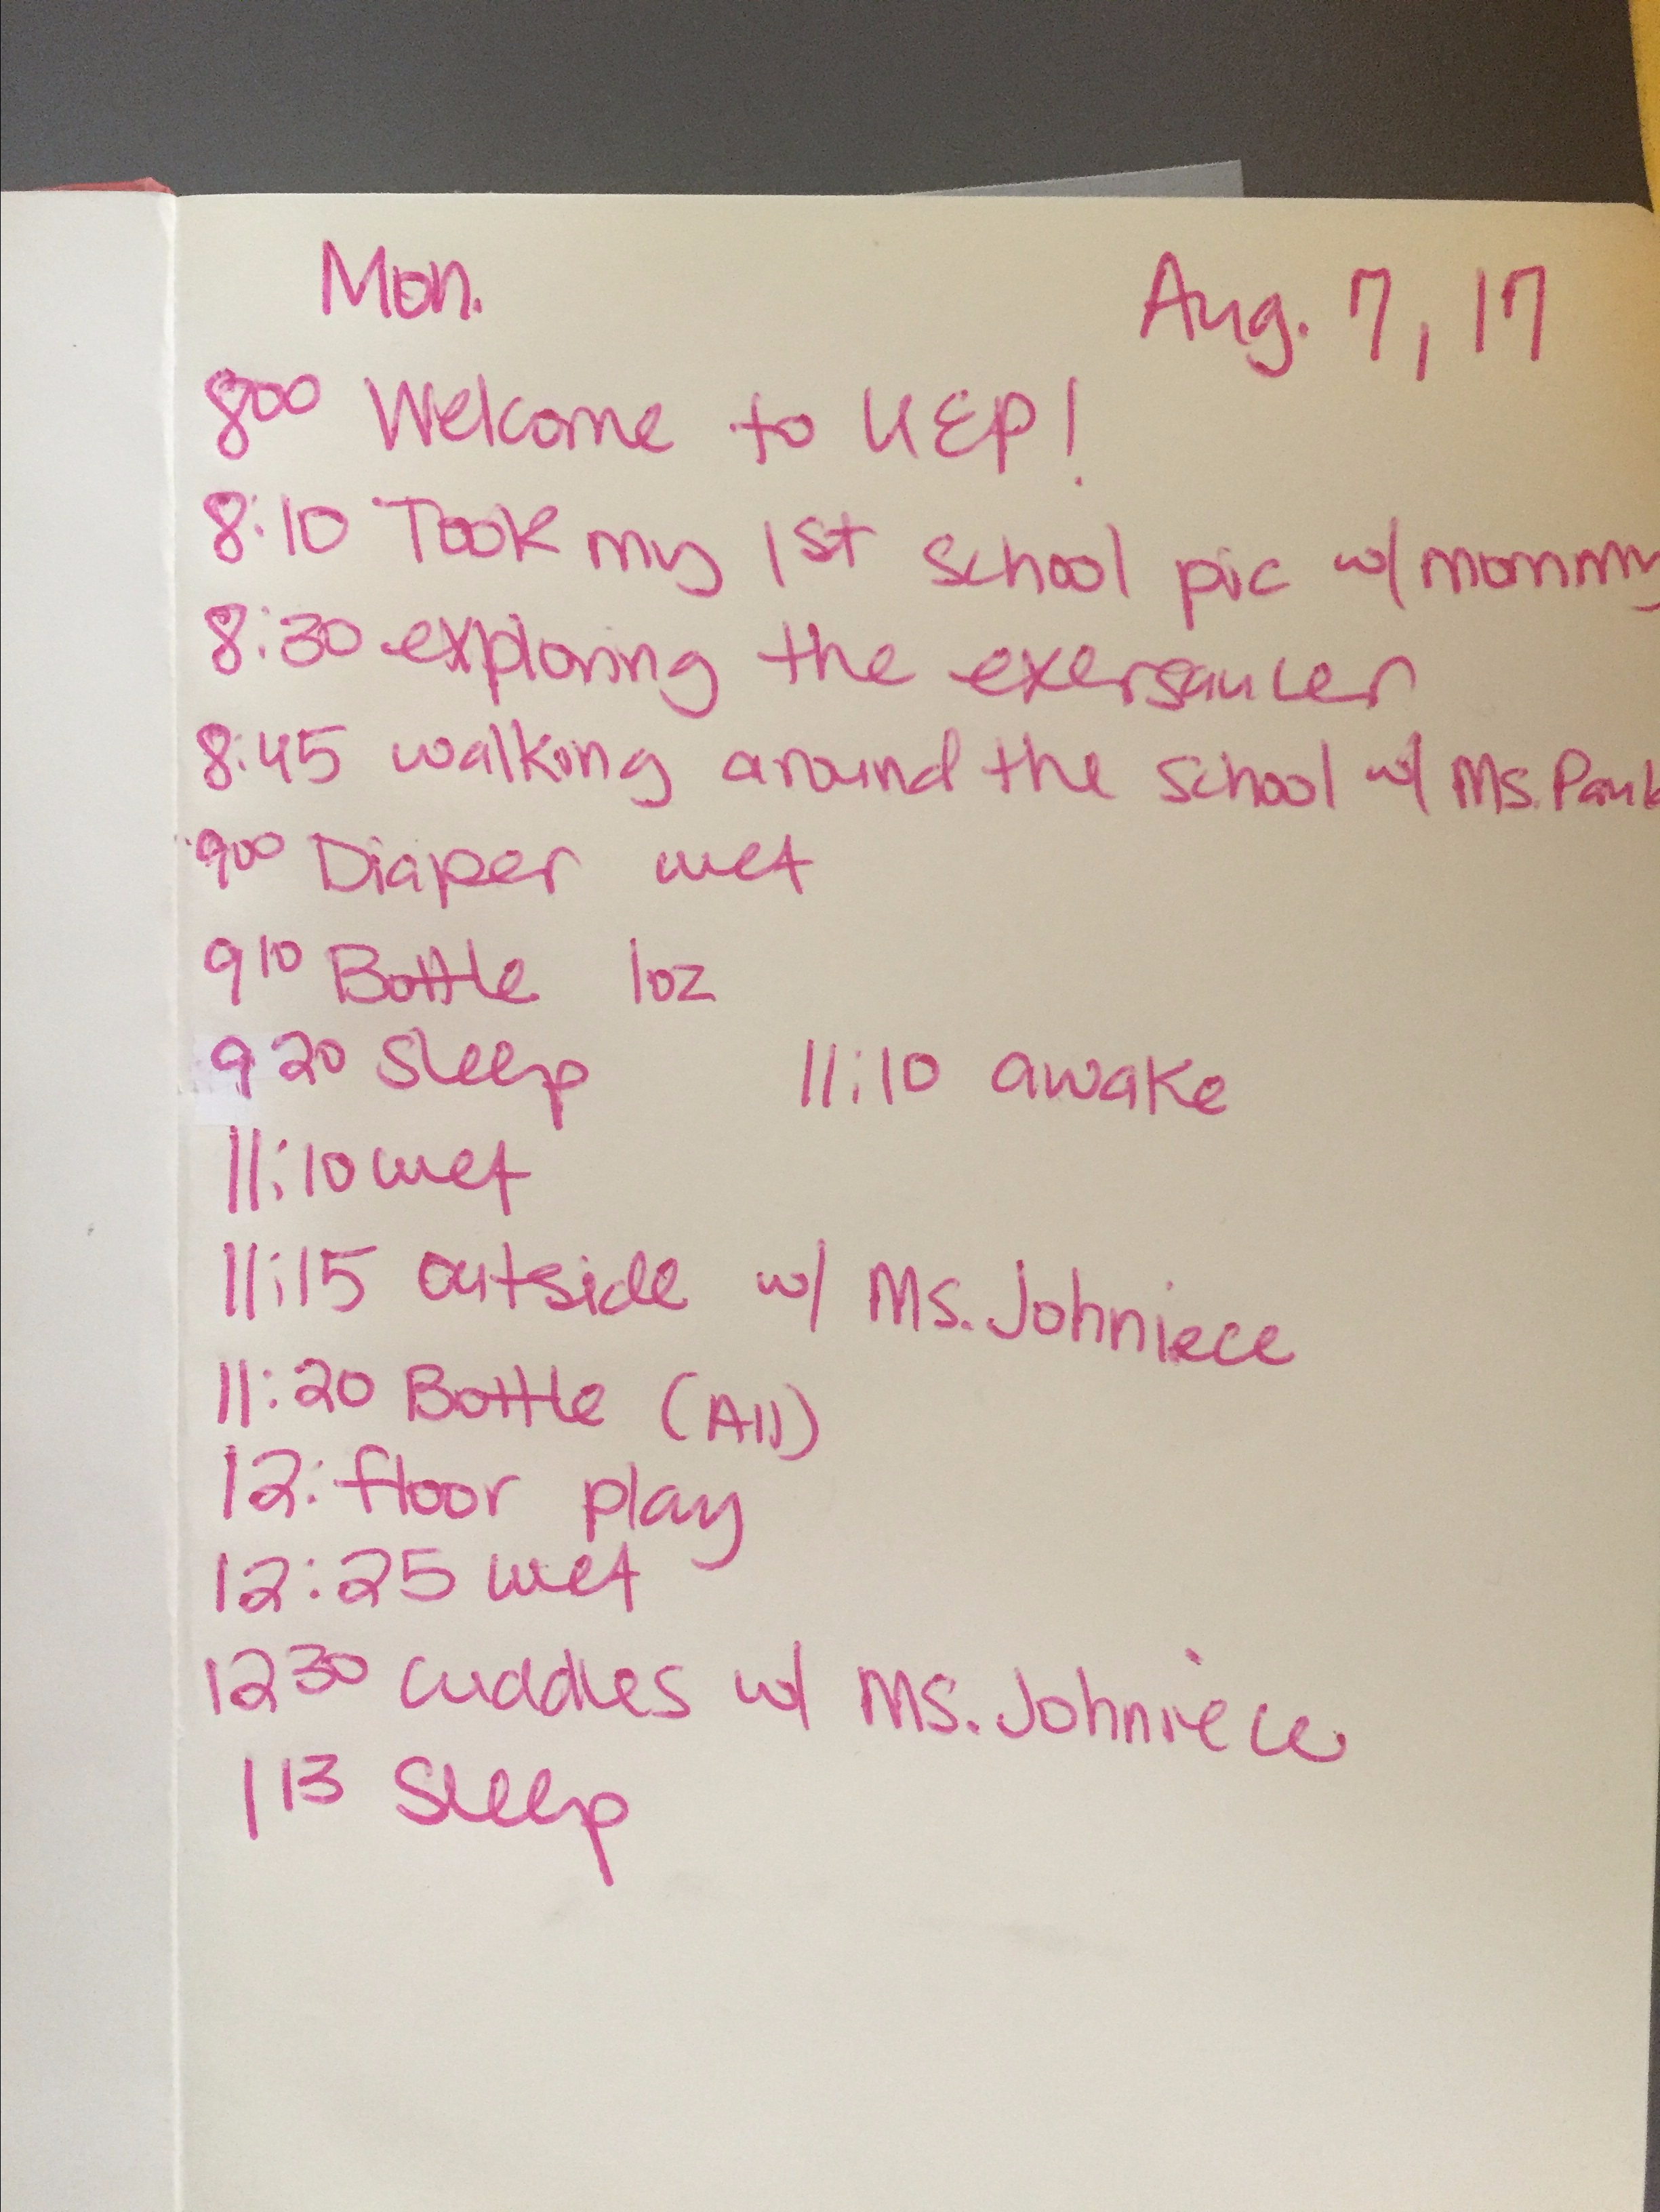 Mon. Aug. 7, 17
800 Welcome to UEP!
8:10 Took my 1st school pic w/ mommy
8:30 exploring the exersaucer
8:45 walking around the school w/ Ms.
900 Diaper wet
910 Bottle 1oz
920 Sleep 11:10 awake
11:10 wet
11:15 outside w/ Ms. Johniece
11:20 Bottle (All)
12: floor play
12:25 wet
1230 cuddles w/ Ms. Johniece
113 Sleep